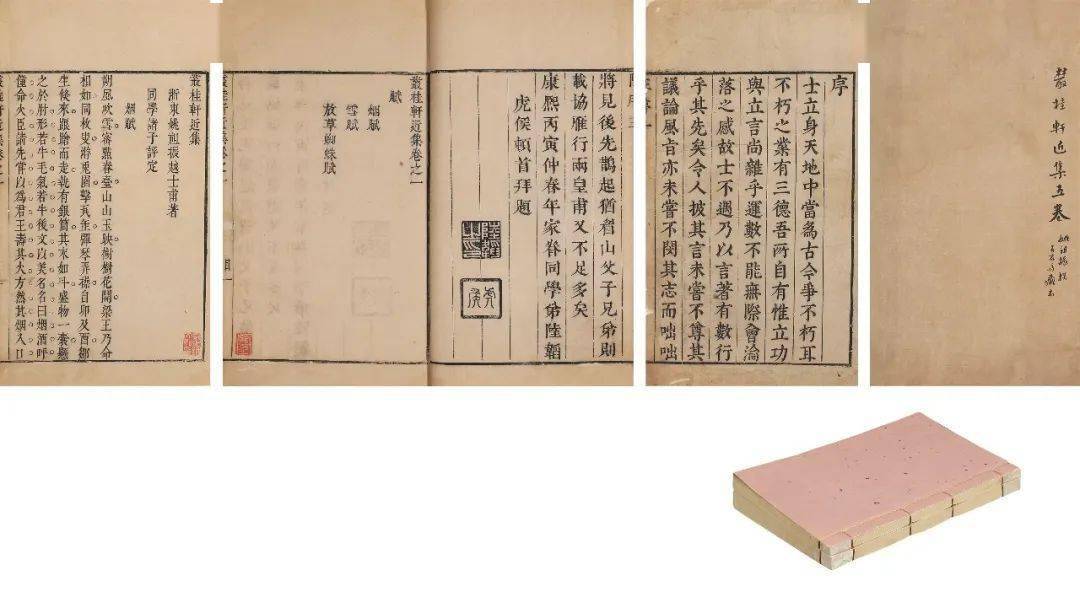 叢桂軒近集五卷
序
士立身天地中當為古今爭不朽耳
不朽之業有三德吾所自有惟立功
與立言尚雜乎運數不能無際會淪
落之感故士不遇乃以言著有數行
乎其先矣令人披其言未嘗不尊其
議論風旨亦未嘗不閔其志而咄咄
將見後先鵲起猶眉山父子兄弟則
載協雁行兩皇甫又不足多矣
康熙丙寅仲春年家眷同學弟陸韜
虎侯頓首拜題
虎侯
叢桂軒近集卷之一
賦
烟賦
雪賦
放草蜘蛛賦
叢桂軒近集卷之一
叢桂軒近集
浙東姚廷振越士甫著
同學諸子評定
烟賦
朔風吹雪霽點春臺山山玉映樹樹花開梁王乃命
相如同枚叟游兔園擊缶彈琴弄操自卯及酉鄒
生後來踉蹌而走執有銀筩其末如斗盛物一囊懸
之於肘形若牛毛氣若牛後文以美名名曰烟酒呼
僮命火臣請先嘗以為君王壽其大方然其烟入口